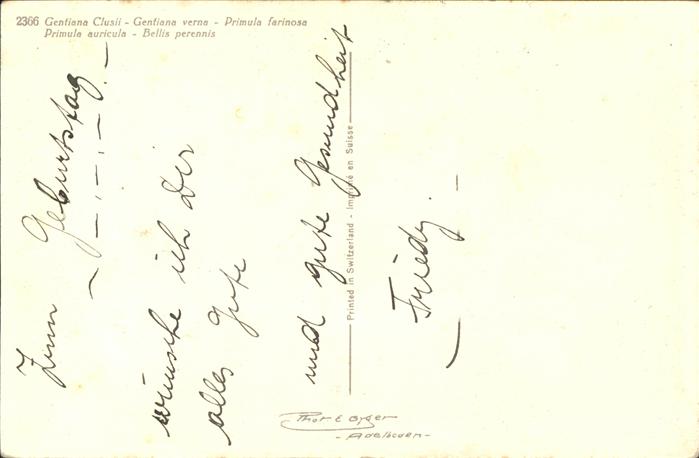 2366 Gentiana Clusii - Gentiana verna - Primula farinosa
Primula auricula - Bellis perennis
Zum Geburtstag.
wünsche ich Dir
alles Gute
und gute Gesundheit
Friedy.
Printed in Switzerland - Imprimé en Suisse
Phot E Gyger
- Adelboden -